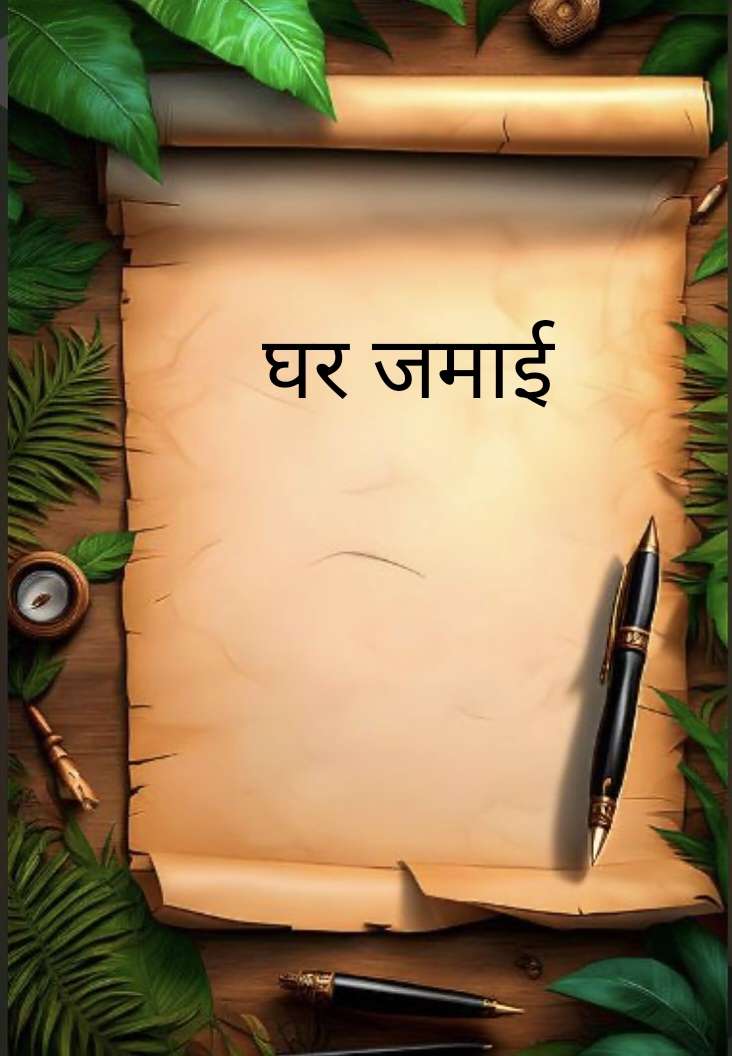 घर जमाई